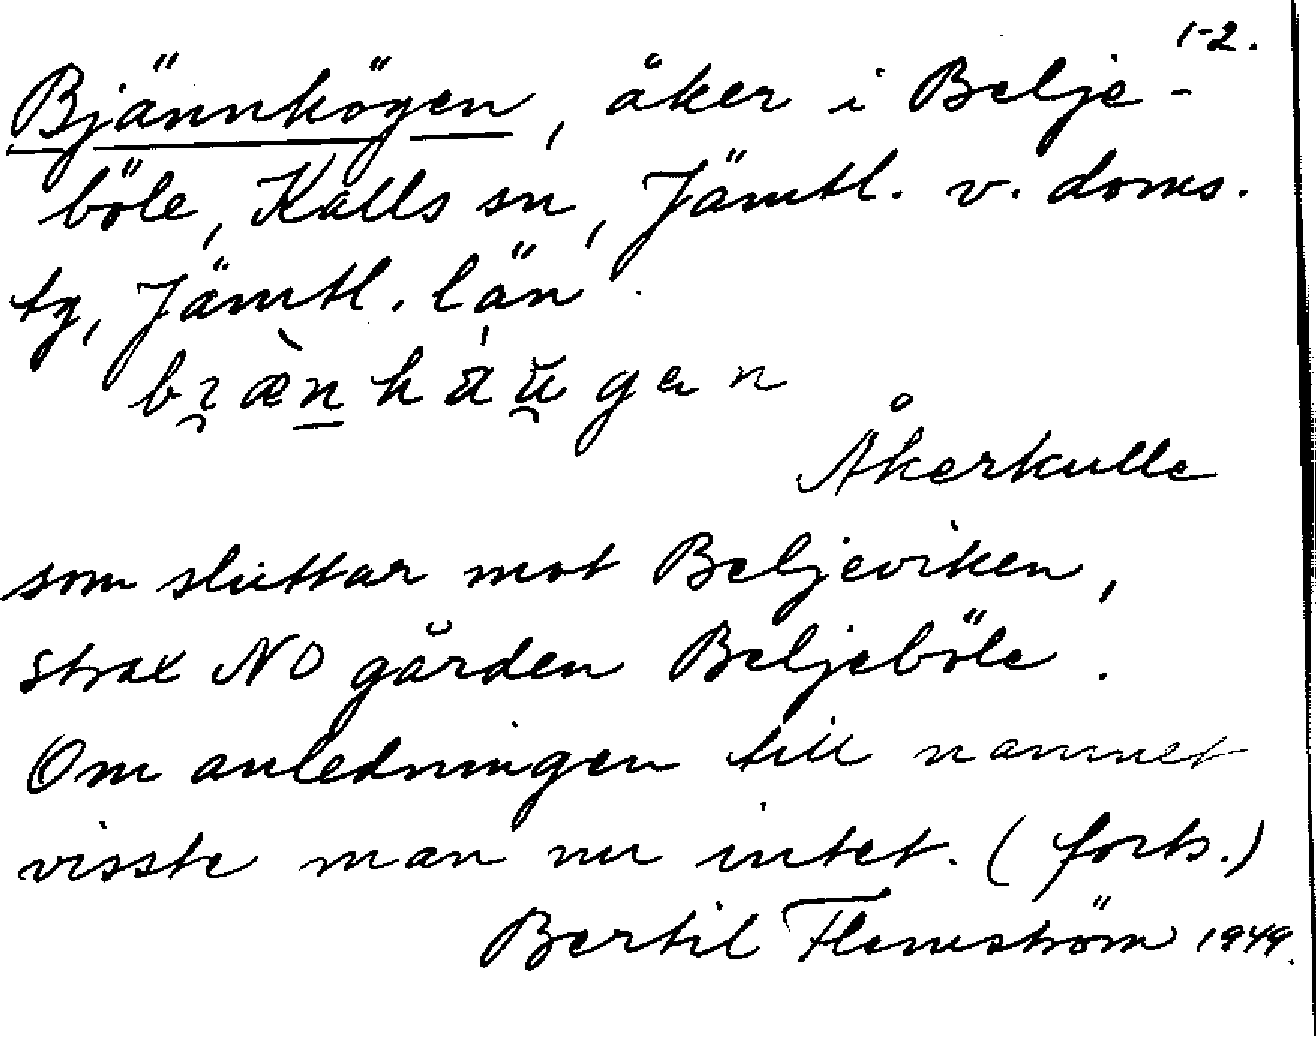 1-2.
Bjännhögen, åker i Belje-
böle, Kalls sn, Jämtl. v. doms.
tg, Jämtl. län.
Åkerkulle
som sluttar mot Beljeviken,
strax NO gården Beljeböle.
Om anledningen till namnet
visste man nu intet. (forts.)
Bertil Flemström 1949.